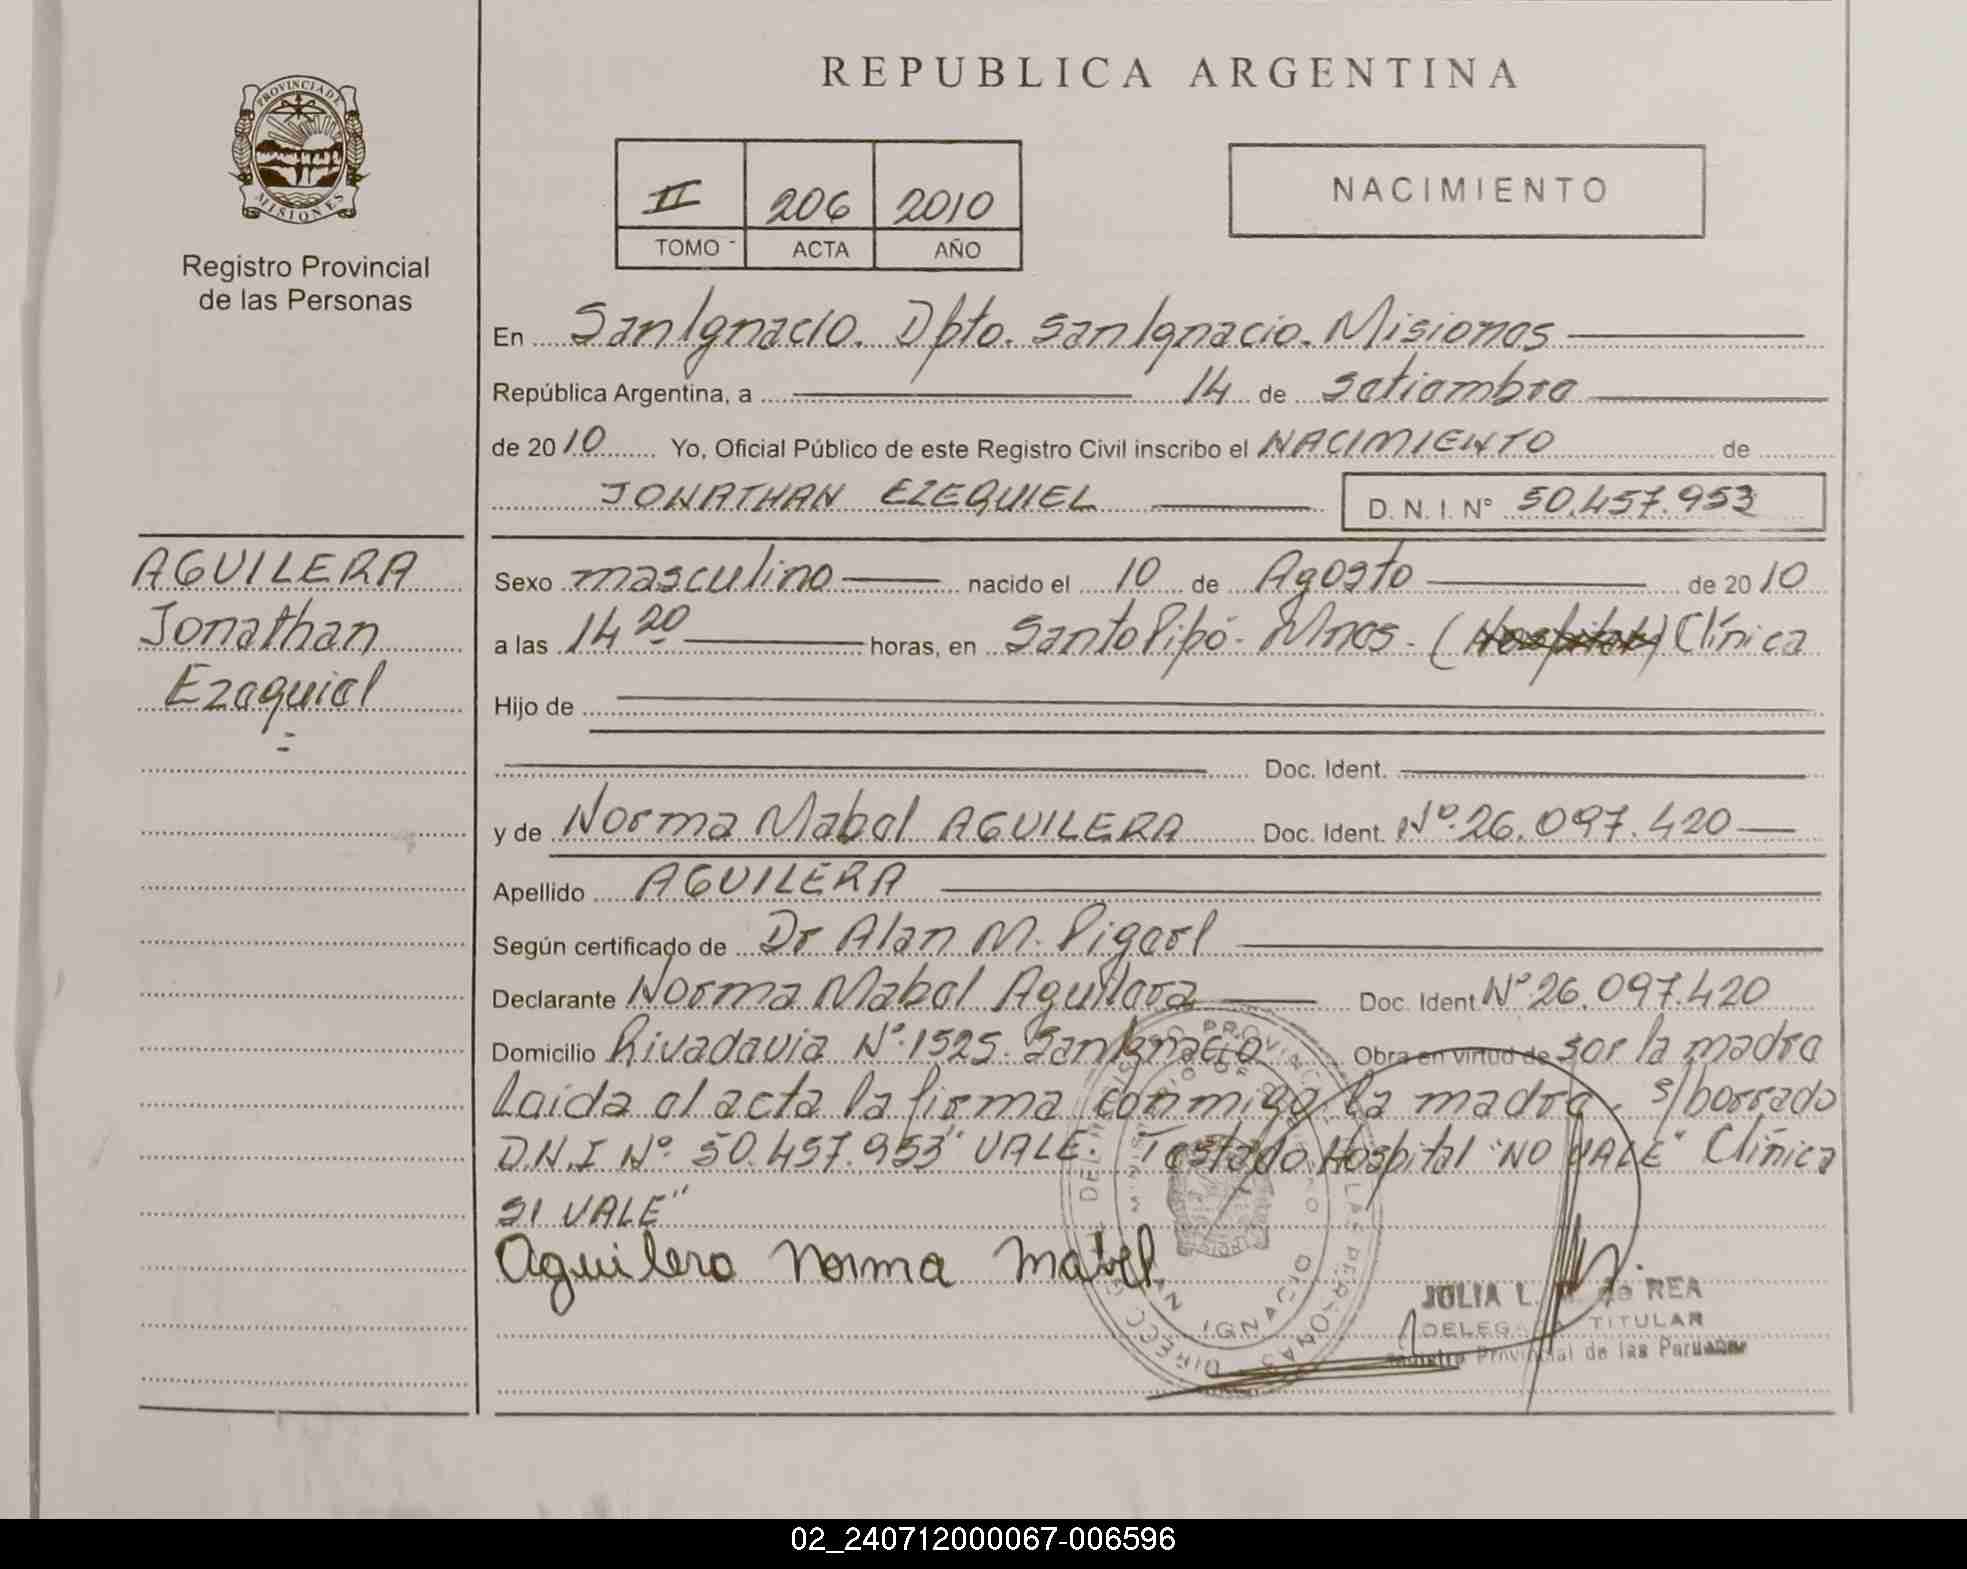 REPUBLICA ARGENTINA
PROVINCIA DE
MISIONES
Registro Provincial
de las Personas
II 206 2010
TOMO ACTA AÑO
NACIMIENTO
En San Ignacio. Dpto. San Ignacio. Misiones
República Argentina, a 14 de Setiembre
de 2010 Yo, Oficial Público de este Registro Civil inscribo el NACIMIENTO de
JONATHAN EZEQUIEL D. N. I. Nº 50.457.953
AGUILERA
Jonathan
Ezequiel
Sexo masculino nacido el 10 de Agosto de 2010
a las 14 20 horas, en Santo Pipó - Mnes - (Hospital) Clínica
Hijo de
Doc. Ident.
y de Norma Mabel AGUILERA Doc. Ident. Nº 26.097.420
Apellido AGUILERA
Según certificado de Dr Alan M. Pigerl
Declarante Norma Mabel Aguilera Doc. Ident Nº 26.097.420
Domicilio Rivadavia Nº 1525. San Ignacio Obra en virtud de ser la madre
Leida el acta la firma conmigo la madre - s/borrado
D.N.I Nº 50.457.953" VALE. Testado Hospital "NO VALE" Clínica
SI VALE"
Aguilera Norma Mabel
JULIA L. de REA
DELEGADA TITULAR
Registro Provincial de las Personas
02_240712000067-006596